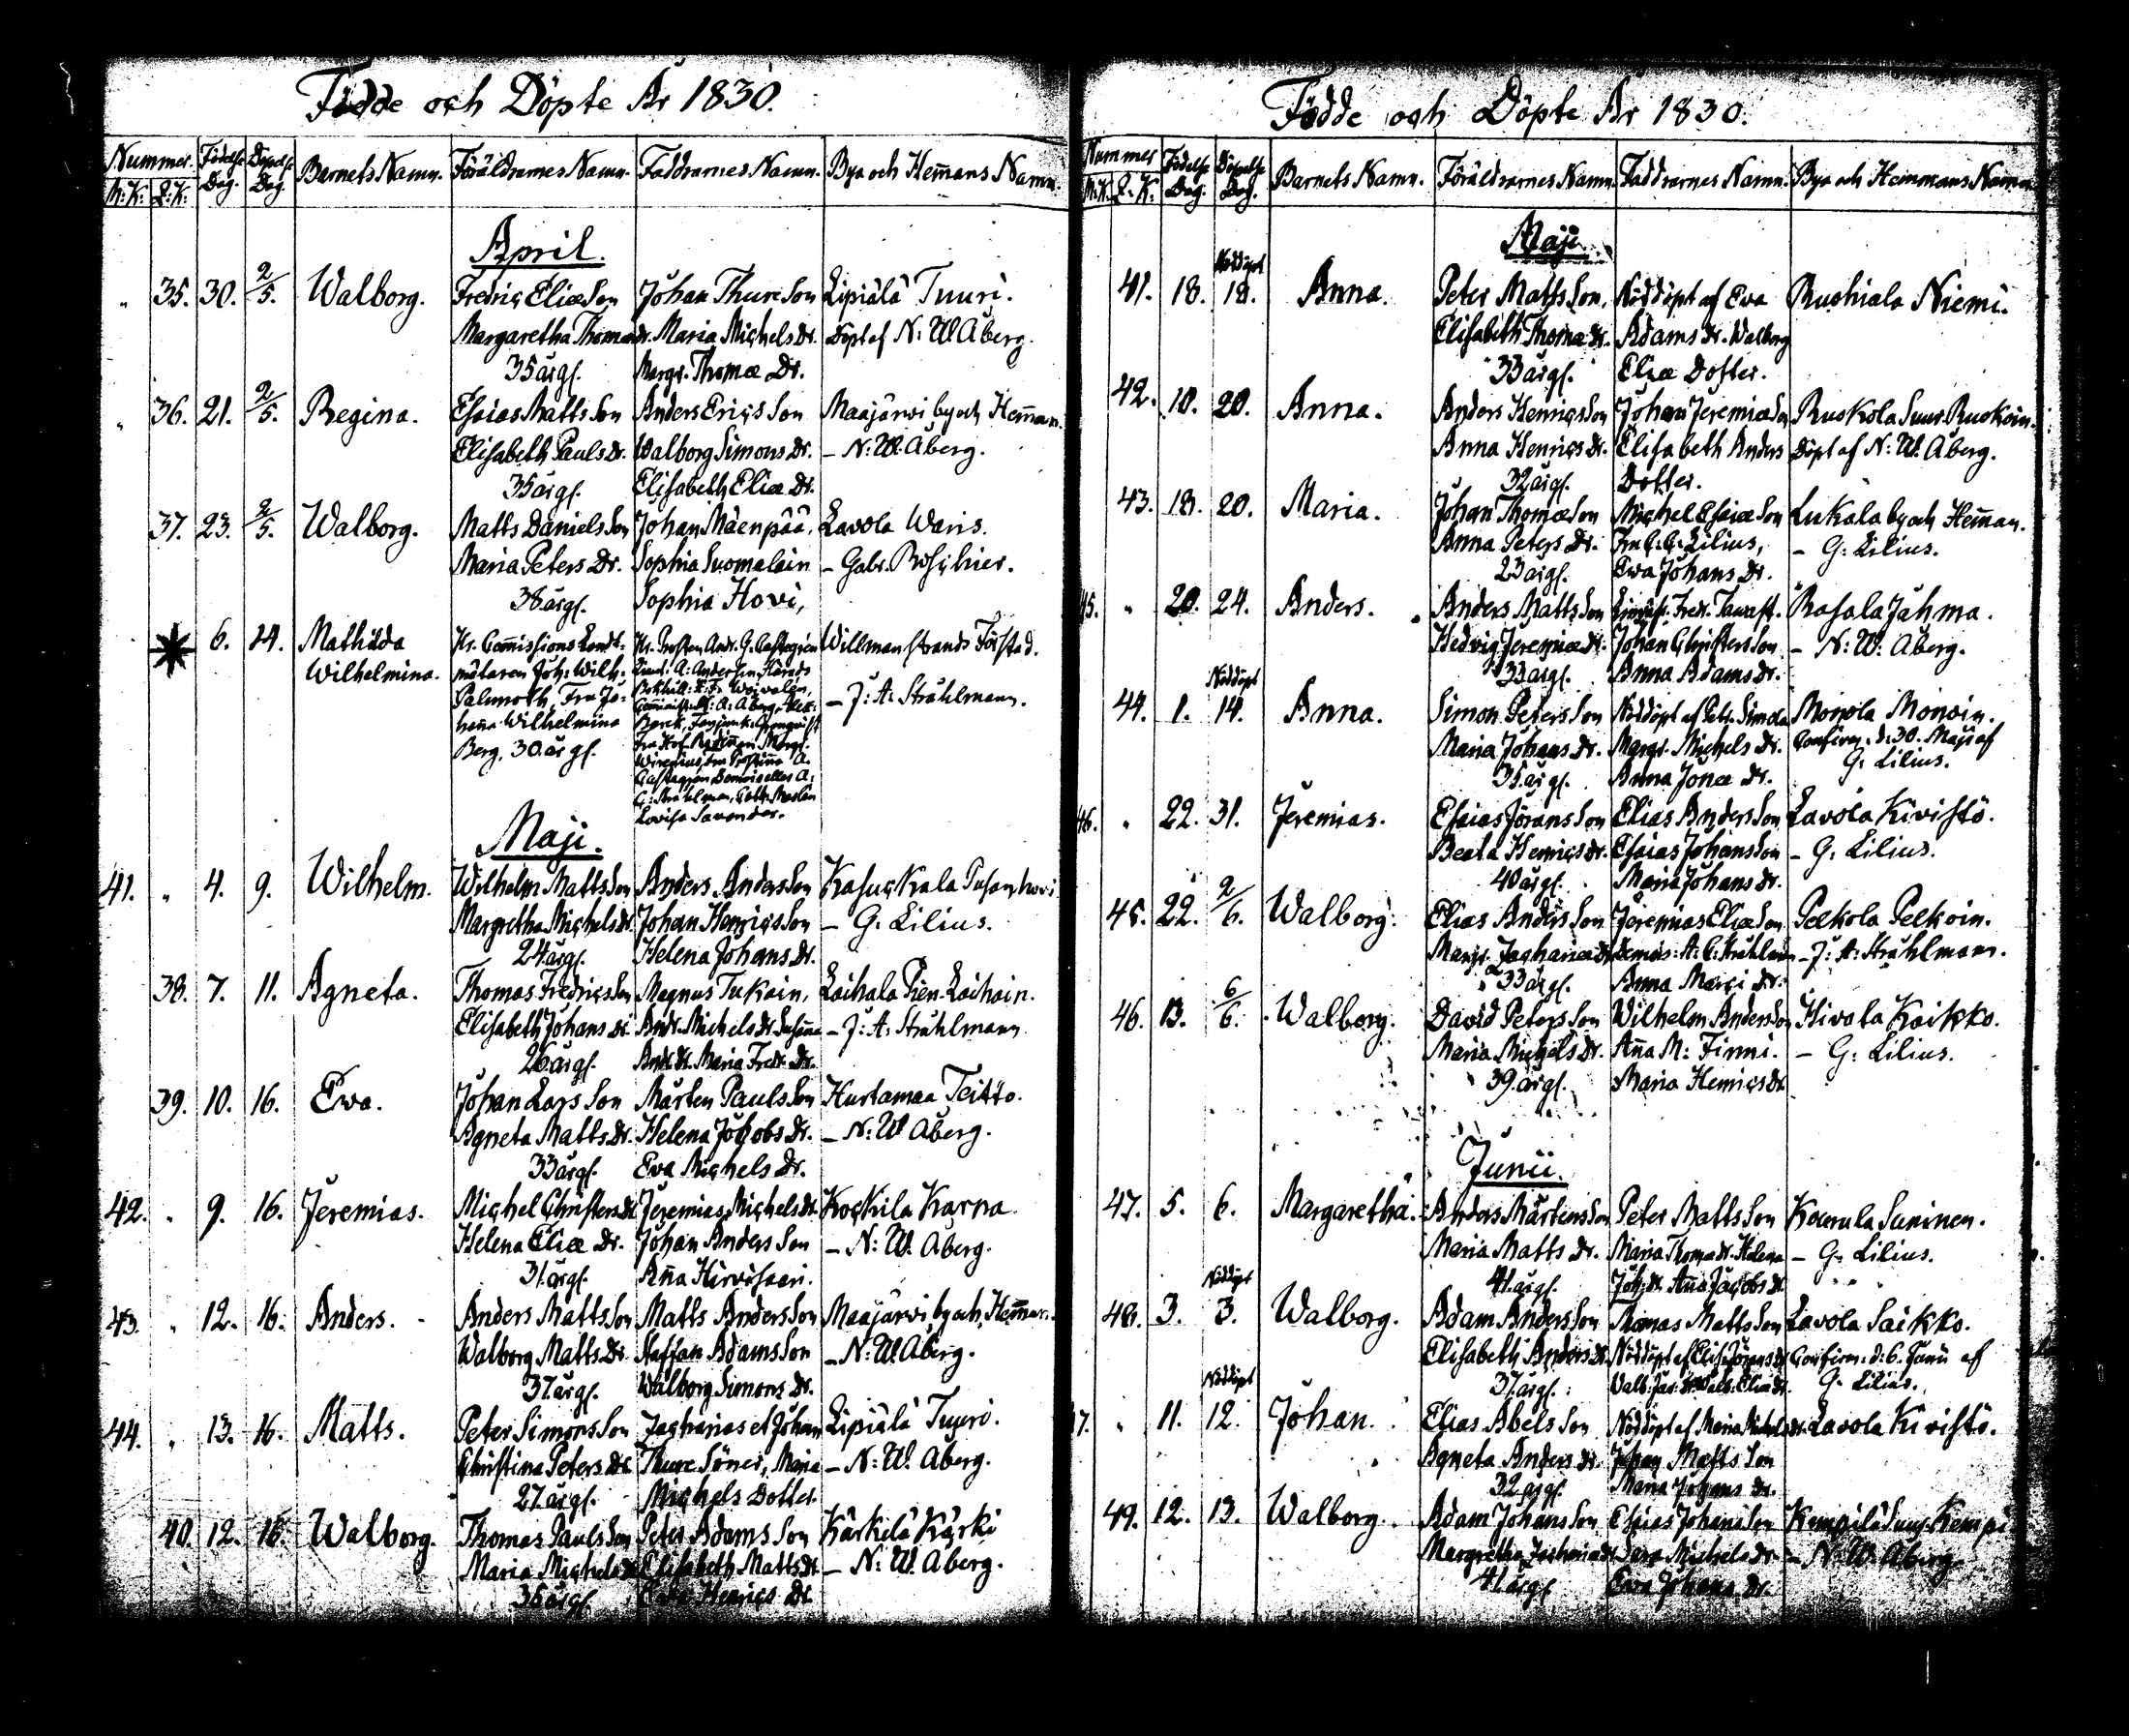 Födde och Döpte År 1830.
Nummer. Födelse Dag. Döpelse Dag. Barnets Namn. Föräldrarnes Namn. Faddrarnes Namn. Bya och Hem̄ans Namn.
M:K: Q:K:
April.
„ 35. 30. 2/5. Walborg. Fredric Eliæ Son Johan Thure Son Lipiälä Tuuri.
Margaretha Thomæ Dr. Maria Michels Dr. Döpt af N: W. Åberg.
35 årg. Margr. Thomæ Dr.
„ 36. 21. 2/5. Regina. Esaias Matts Son Anders Erics Son Maajärwi by och Hem̄an.
Elisabeth Pauls Dr. Walborg Simons Dr. – N: W. Åberg.
35 årg. Elisabeth Eliæ Dr.
37. 23. 2/5. Walborg. Matts Daniels Son Johan Mäenpää, Lavola Waris.
Maria Peters Dr. Sophia Suomalain – Gabr. Poschier.
38 årg. Sophia Hovi,
6. 24. Mathilda Hr. Com̄issions Landt- Hr. Prosten Andr. G. Castegrén Willmanstrands Förstad.
Wilhelmina. mätaren Joh: Wilh:
Palmroth, Fru Jo- – J: A: Stråhlmann.
hen̄a Wilhelmina
Berg, 30. årg.
Lovisa Savander.
Maji.
41. „ 4. 9. Wilhelm. Wilhelm Matts Son Anders Anders Son Kasuckala
Margretha Michels Dr. Johan Henrics Son – G. Lilius.
24 årg. Helena Johans Dr.
38. 7. 11. Agneta. Thomas Fredrics Son Magnus Tukain, Laihala Pien. Laihain.
Elisabeth Johans Dr. Andr. Michels Dr. Susan̄a – J: A: Stråhlmann
26 årg. Andr. Dr. Maria Fredr. Dr.
39. 10. 16. Ewa. Johan Lars Son Mårten Pauls Son Hurtamaa Teitto.
Agneta Matts Dr. Helena Jacobs Dr. – N: W Åberg.
33 årg. Eva Michels Dr.
42. „ 9. 16. Jeremias. Michel Christers Jeremias Michels Kockila Karna.
Helena Eliæ Dr. Johan Anders Son – N: W. Åberg.
31. årg. An̄a Hirvisaari.
43. „ 12. 16. Anders. Anders Matts Son Matts Anders Son Maajärwi by och Hem̄an.
Walborg Matts Dr. Staffan Adams Son – N: W. Åberg.
37 årg. Walborg Simons Dr.
44. „ 13. 16. Matts. Peter Simons Son Zacharias et Johan Lipiälä Tuuri.
Christina Peters Dr. Thure Söner, Maria – N: W. Åberg.
27 årg. Michels Dotter.
40. 12. 16. Walborg. Thomas Pauls Son Peter Adams Son Kärkelä Kärki
Maria Michels Dr. Elisabeth Matts Dr. – N: W. Åberg.
36 årg. Henrics Dr.
Födde och Döpte År 1830.
Nummer Födelse Dag. Döpelse Dag. Barnets Namn. Föräldrarnes Namn. Faddrarnes Namn. Bya och Hemmans Namn.
M:K. Q:K:
Maji.
Nöddöpt
41. 18. 18. Anna. Peter Matts Son, Nöddöpt af Eva Ruohiala Niemi.
Elisabeth Thomæ Dr. Adams Dr. Walborg
33 årg. Eliæ Dotter.
42. 18. 20. Anna. Anders Henrics Son Johan Jeremiæ Son Ruokola Suur Ruokoin.
Anna Henrics Dr. Elisabeth Anders Döpt af N: W. Åberg.
32 årg. Dotter.
43. 18. 20. Maria. Johan Thomæ Son Michel Esaiæ Son Lukala by och Hem̄an.
Anna Peters Dr. Fru C: G: Lilius, – G: Lilius.
23 årg. Ewa Johans Dr.
45. „ 20. 24. Anders. Anders Matts Son Fredr. Tawast. Rasala Jähma.
Hedvig Jeremiæ Dr. Johan Christers Son – N: W. Åberg.
33 årg. Anna Adams Dr.
Nöddöpt
44. 1. 14. Anna. Simon Peters Son Nöddöpt af Petr. Simola Monola Monoin.
Maria Johans Dr. Margr. Michels Dr. Confirm. d: 30. Maji af
35. årg. Anna Jonæ Dr. G: Lilius.
46. „ 22. 31. Jeremias. Esaias Jörans Son Elias Anders Son Lavola Kivistö.
Beata Henrics Dr. Esaias Johans Son – G: Lilius.
40 årg. Maria Johans Dr.
45. 22. 2/6. Walborg. Elias Anders Son Jeremias Eliæ Son Pelkola Pelkoin.
Margr. Zachariæ Dr. Demois: A: C: Stråhlman – J: A: Stråhlmann.
33 årg. Anna Marci Dr.
46. 13. 6/6. Walborg. David Peters Son Wilhelm Anders Son Hivata Kaikko.
Maria Michels Dr. An̄a M: Finni. – G: Lilius.
39. årg. Maria Henrics Dr.
Junii.
47. 5. 6. Margaretha. Anders Mårtens Son Peter Matts Son Kaurula Suninen.
Maria Matts Dr. Maria Thomæ Dr. Helena – G: Lilius.
41. årg. Joh: Dr. An̄a Jacobs Dr.
Nöddöpt
48. 3. 3. Walborg. Adam Anders Son Thomas Matts Son Lavola Saikko.
Elisabeth Anders Dr. Nöddöpt af Elis. Jörans Dr. Confirm. d: 6. Junii af
37. årg. G: Lilius.
Nöddöpt
47. „ 11. 12. Johan. Elias Abels Son Nöddöpt af Maria Michels Dr. Lavola Kivistö.
Agneta Anders Dr. Johan Matts Son
32 årg. Maria Johans Dr.
49. 12. 13. Walborg. Adam Johans Son Esaias Johans Son Kempilä Suur Kempi
Margretha Zachariæ Dr. Sara Michels Dr. – N: W. Åberg.
41 årg. Ewa Johans Dr.